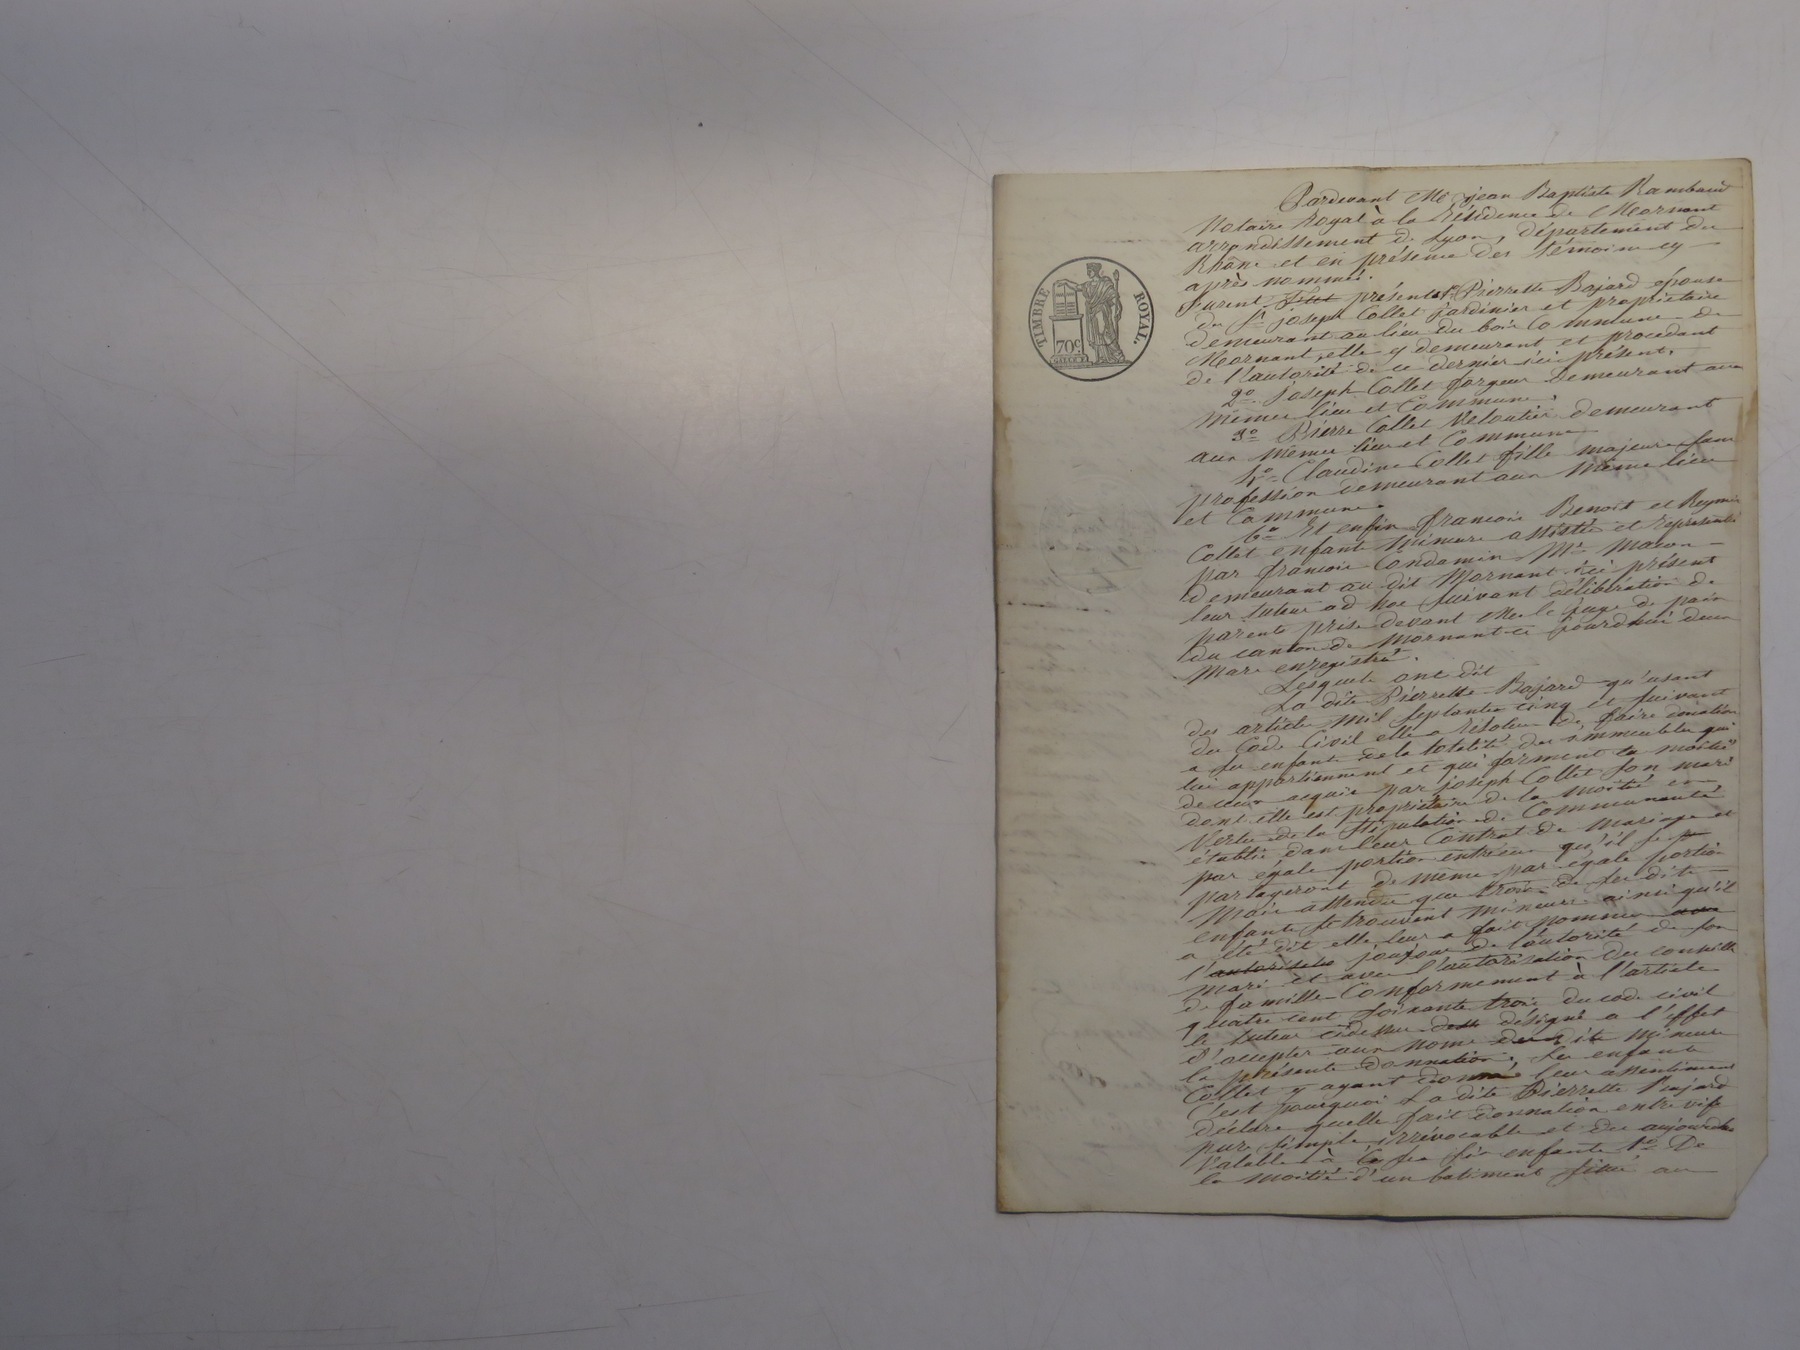 TIMBRE ROYAL.
70c
Pardevant Me jean Baptiste Rambaud
Notaire Royal à la Résidence de Mornant
arrondissement de Lyon, département du
Rhône et en présence des témoins cy
après nommés.
furent présents 1º Pierrette Bajard épouse
du Sr joseph Collet jardinier et propriétaire
demeurant au lieu du bois Commune de
Mornant, elle y demeurant et procédant
de l'autorité de ce dernier ici présent.
2º joseph Collet forgeur demeurant aux
mêmes lieu et Commune.
3º Pierre Collet Veloutier demeurant
aux mêmes lieu et Commune
4º Claudine Collet fille majeure sans
profession demeurant aux même lieu
et Commune.
6º Et enfin françois Benoit et
Collet enfants mineurs assistés et représentés
par françois Condamin Md Maçon
demeurant au dit Mornant ici présent
leur tuteur ad hoc suivant délibération de
parents prise devant Mr le juge de paix
du canton de Mornant ce jourd'hui deux
Mars enregistré.
Lesquels ont dit
La dite Pierrette Bajard qu'usant
des articles mil septante cinq et suivant
du Code Civil elle a résolu de faire donation
a ses enfants de la totalité des immeubles qui
lui appartiennent et qui forment la moitié
de ceux acquis par joseph Collet son mari
dont elle est propriétaire de la moitié en
Vertu de la stipulation de Communauté
établie dans leur Contrat de Mariage et
par égale portion entre eux qu'il se
partageront de même par égale portion
Mais attendu que trois de ses dits
enfants se trouvent mineurs ainsi qu'il
a été dit elle leur a fait nommer avec
l'autorisation toujours de l'autorité de son
mari et avec l'autorisation du conseille
de famille Conformément à l'article
quatre cent soixante trois du code civil
le tuteur cidessus désigné a l'effet
d'accepter aux noms des dits mineurs
la présente donnation, les enfants
Collet y ayant donné leur assentiment
C'est pourquoi La dite Pierrette Bajard
déclare quelle fait donnation entre vifs
pure simple irrévocable et des aujourdhui
Valable à ses six enfants 1º De
la moitié d'un batiment situé au